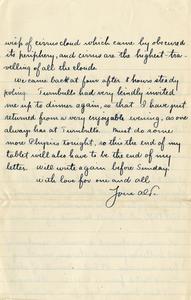 wisp of cirrus cloud which came by obscured
its periphery, and cirrus are the highest-tra-
velling of all the clouds.
We came back at four after 8 hours steady
going. Turnbulls had very kindly invited
me up to dinner again, so that I have just
returned from a very enjoyable evening, as one
always has at Turnbulls. Must do some
more Physics tonight, so this the end of my
tablet will also have to be the end of my
letter. Will write again before Sunday.
With love for one and all